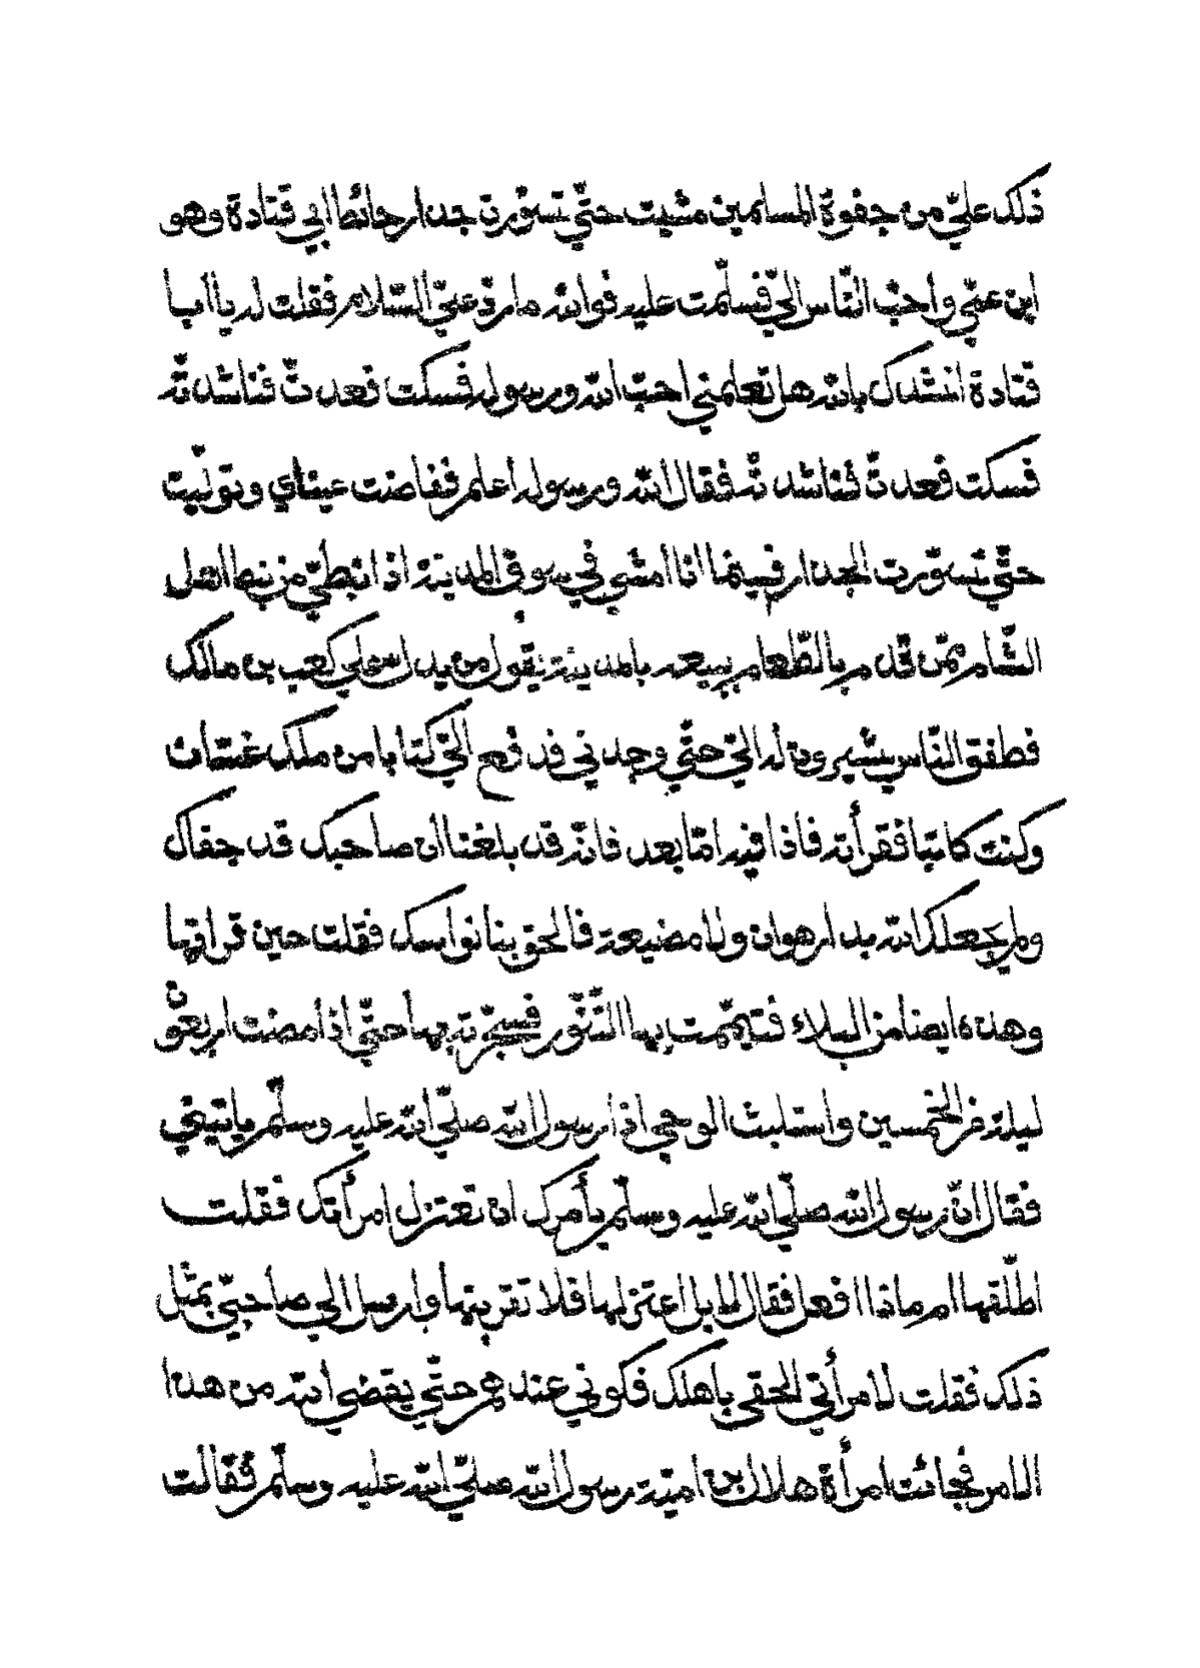 ذلك عليّ من جفوة المسلمين مشيت حتّي تسوّرت جدار حائط ابي قتادة وهو
ابن عمّي واحبّ النّاس اليّ فسلّمت عليه فوالله ما ردّ عليّ السّلام فقلت له يا ابا
قتادة انشدك بالله هل تعلمني احبّ الله ورسوله فسكت فعدتّ فناشدتّه
فسكت فعدتّ فناشدتّه فقال الله ورسوله اعلم ففاضت عيناي وتولّيت
حتّي تسوّرت الجدار فبينما انا أمشي في سوق المدينة اذا نبطيّ من نبط اهل
الشّام ممّن قدم بالطّعام يبيعه بالمدينة يقول من يدلّ علي كعب بن مالك
فطفق النّاس يشيرون له اليّ حتّي وجدني فدفع اليّ كتابا من ملك غسّان
وكنت كاتبا فقرأته فاذا فيه امّا بعد فانّه قد بلغنا ان صاحبك قد جفاك
ولم يجعلك الله بدار هوان ولا مضيعة فالحق بنا نواسك فقلت حين قراتها
وهذه ايضا من البلاء فتيمّمت بها التّنّور فسجرته بها حتّي اذا مضت اربعون
ليلة من الخمسين واستلبث الوحي اذا رسول الله صلّي الله عليه وسلّم ياتيني
فقال انّ رسول الله صلّي الله عليه وسلّم يأمرك ان تعتزل إمرأتك فقلت
اطلّقها ام ماذا افعل فقال لا بل اعتزلها فلا تقربنها وارسل الي صاحبيّ بمثل
ذلك فقلت لامرأتي الحقي باهلك فكوني عندهم حتّي يقضي الله من هذا
الامر فجائت امرأة هلال بن اميّة رسول الله صلّي الله عليه وسلّم فقالت